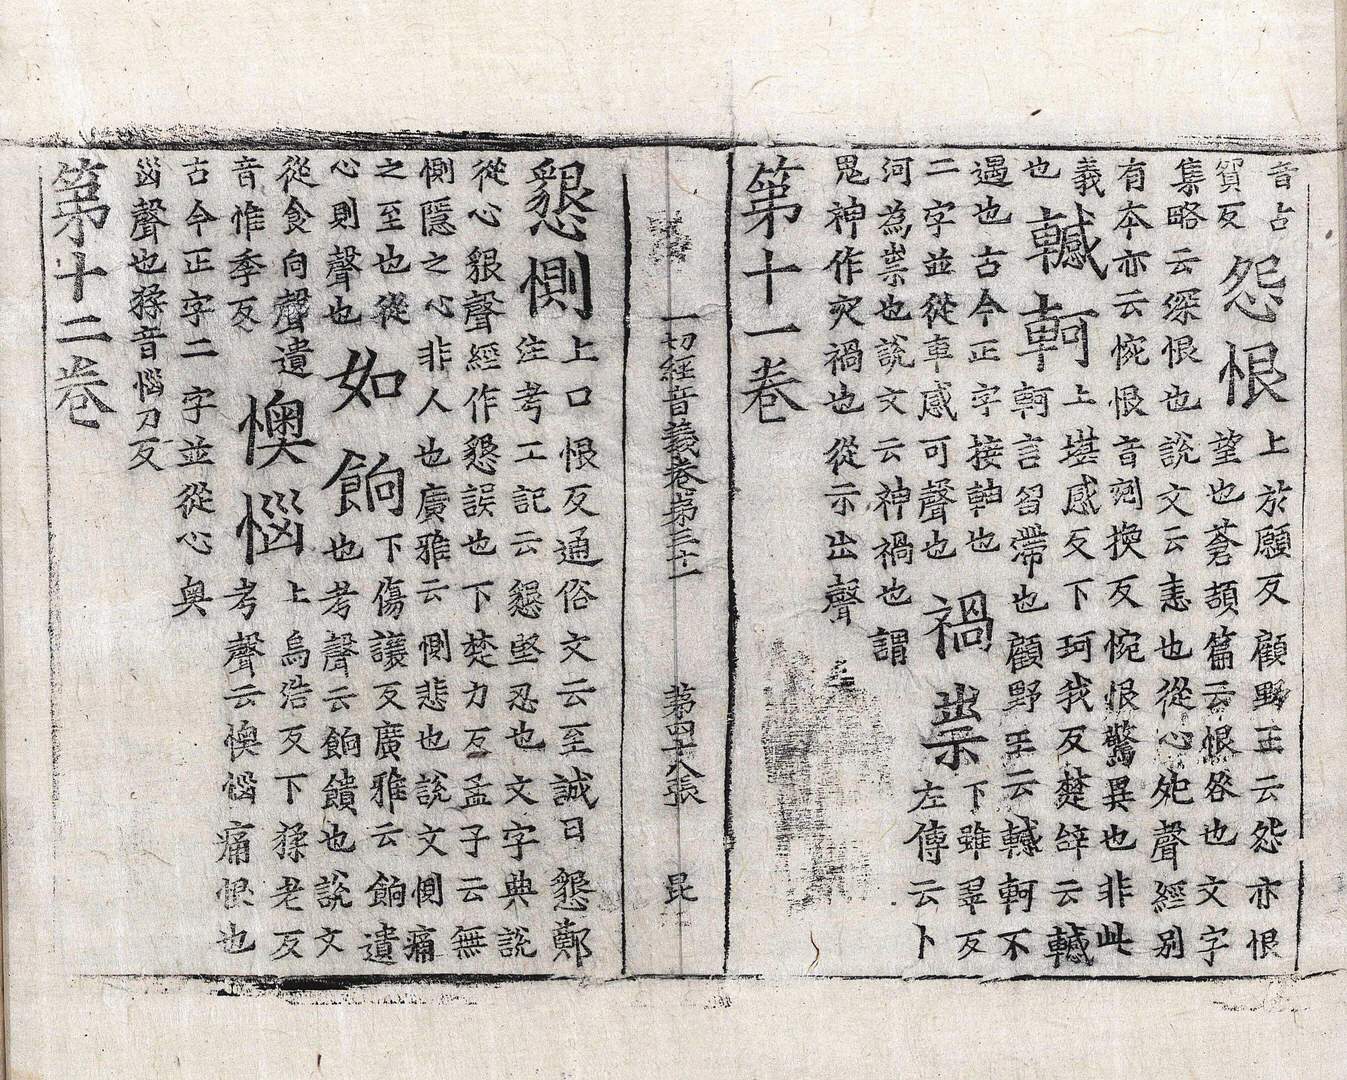 音占
賀反
怨恨
上於願反顧野王云怨亦恨
望也蒼頡篇云恨咎也文字
集略云深恨也說文云恚也從心夗聲經別
有本亦云惋恨音剜換反惋恨驚異也非此
義
也
轗軻
上堪感反下珂我反楚辝云轗
軻言習滯也顧野王云轗軻不
遇也古今正字接軸也
二字並從車感可聲也
禍祟
下雖翠反
左傳云卜
河為祟也說文云神禍也謂
鬼神作灾禍也從示出聲
第十一卷
一切經音義卷第三十一 第四十八張 昆
懇惻
上口恨反通俗文云至誠曰懇鄭
注考工記云懇堅忍也文字典說
從心貇聲經作懇誤也下楚力反孟子云無
惻隱之心非人也廣雅云惻悲也說文惻痛
之至也從
心則聲也
如餉
下傷讓反廣雅云餉遺
也考聲云餉饋也說文
從食向聲遺
音惟季反
懊惱
上烏浩反下猱老反
考聲云懊惱痛恨也
古今正字二字並從心奧
𡿺聲也猱音惱刀反
第十二卷